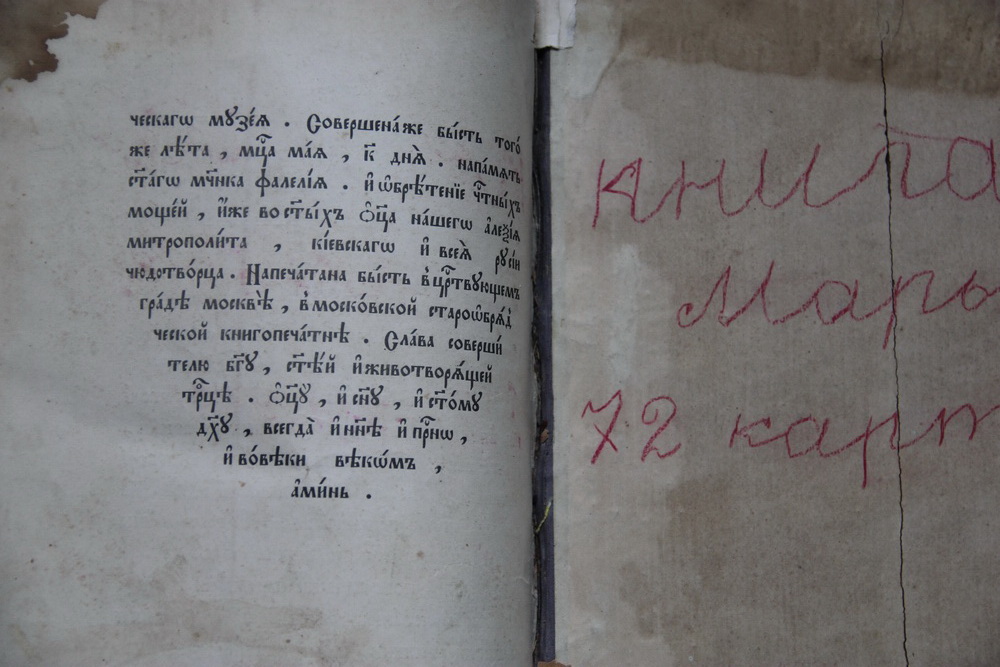 ческагѡ мꙋзе́ѧ . Соверше́на же бы́сть того́
же лѣ́та , мц҃а ма́ѧ , к҃ днѧ̀ . на па́мѧть
ст҃а́гѡ мч҃нка фалеле́ѧ . И҆ ѡ҆брѣ́тенїе чⷭ҇тны́хъ
моще́й , и҆́же во ст҃ы́хъ ѻ҆ц҃а̀ на́шегѡ а҆леѯі́ѧ
митрополи́та , кі́евскагѡ и҆ всеѧ̀ рꙋсі́и
чюдотво́рца . Напеча́тана бы́сть в҆ црⷭ҇твꙋющемъ
гра́дѣ москвѣ̀ , в҆ моско́вской староѡ҆брѧ́д
ческой книгопеча́тнѣ . Сла́ва соверши́
телю бг҃ꙋ , ст҃ѣ́й и҆ животворѧ́щей
трⷪ҇цѣ . ѻ҆ц҃ꙋ̀ , и҆ сн҃ꙋ , и҆ ст҃о́мꙋ
дх҃ꙋ , всегда̀ и҆ нн҃ѣ и҆ при́снѡ ,
и҆ во вѣ́ки вѣкѡ́мъ ,
а҆ми́нь .
книга
Марь
72 карт